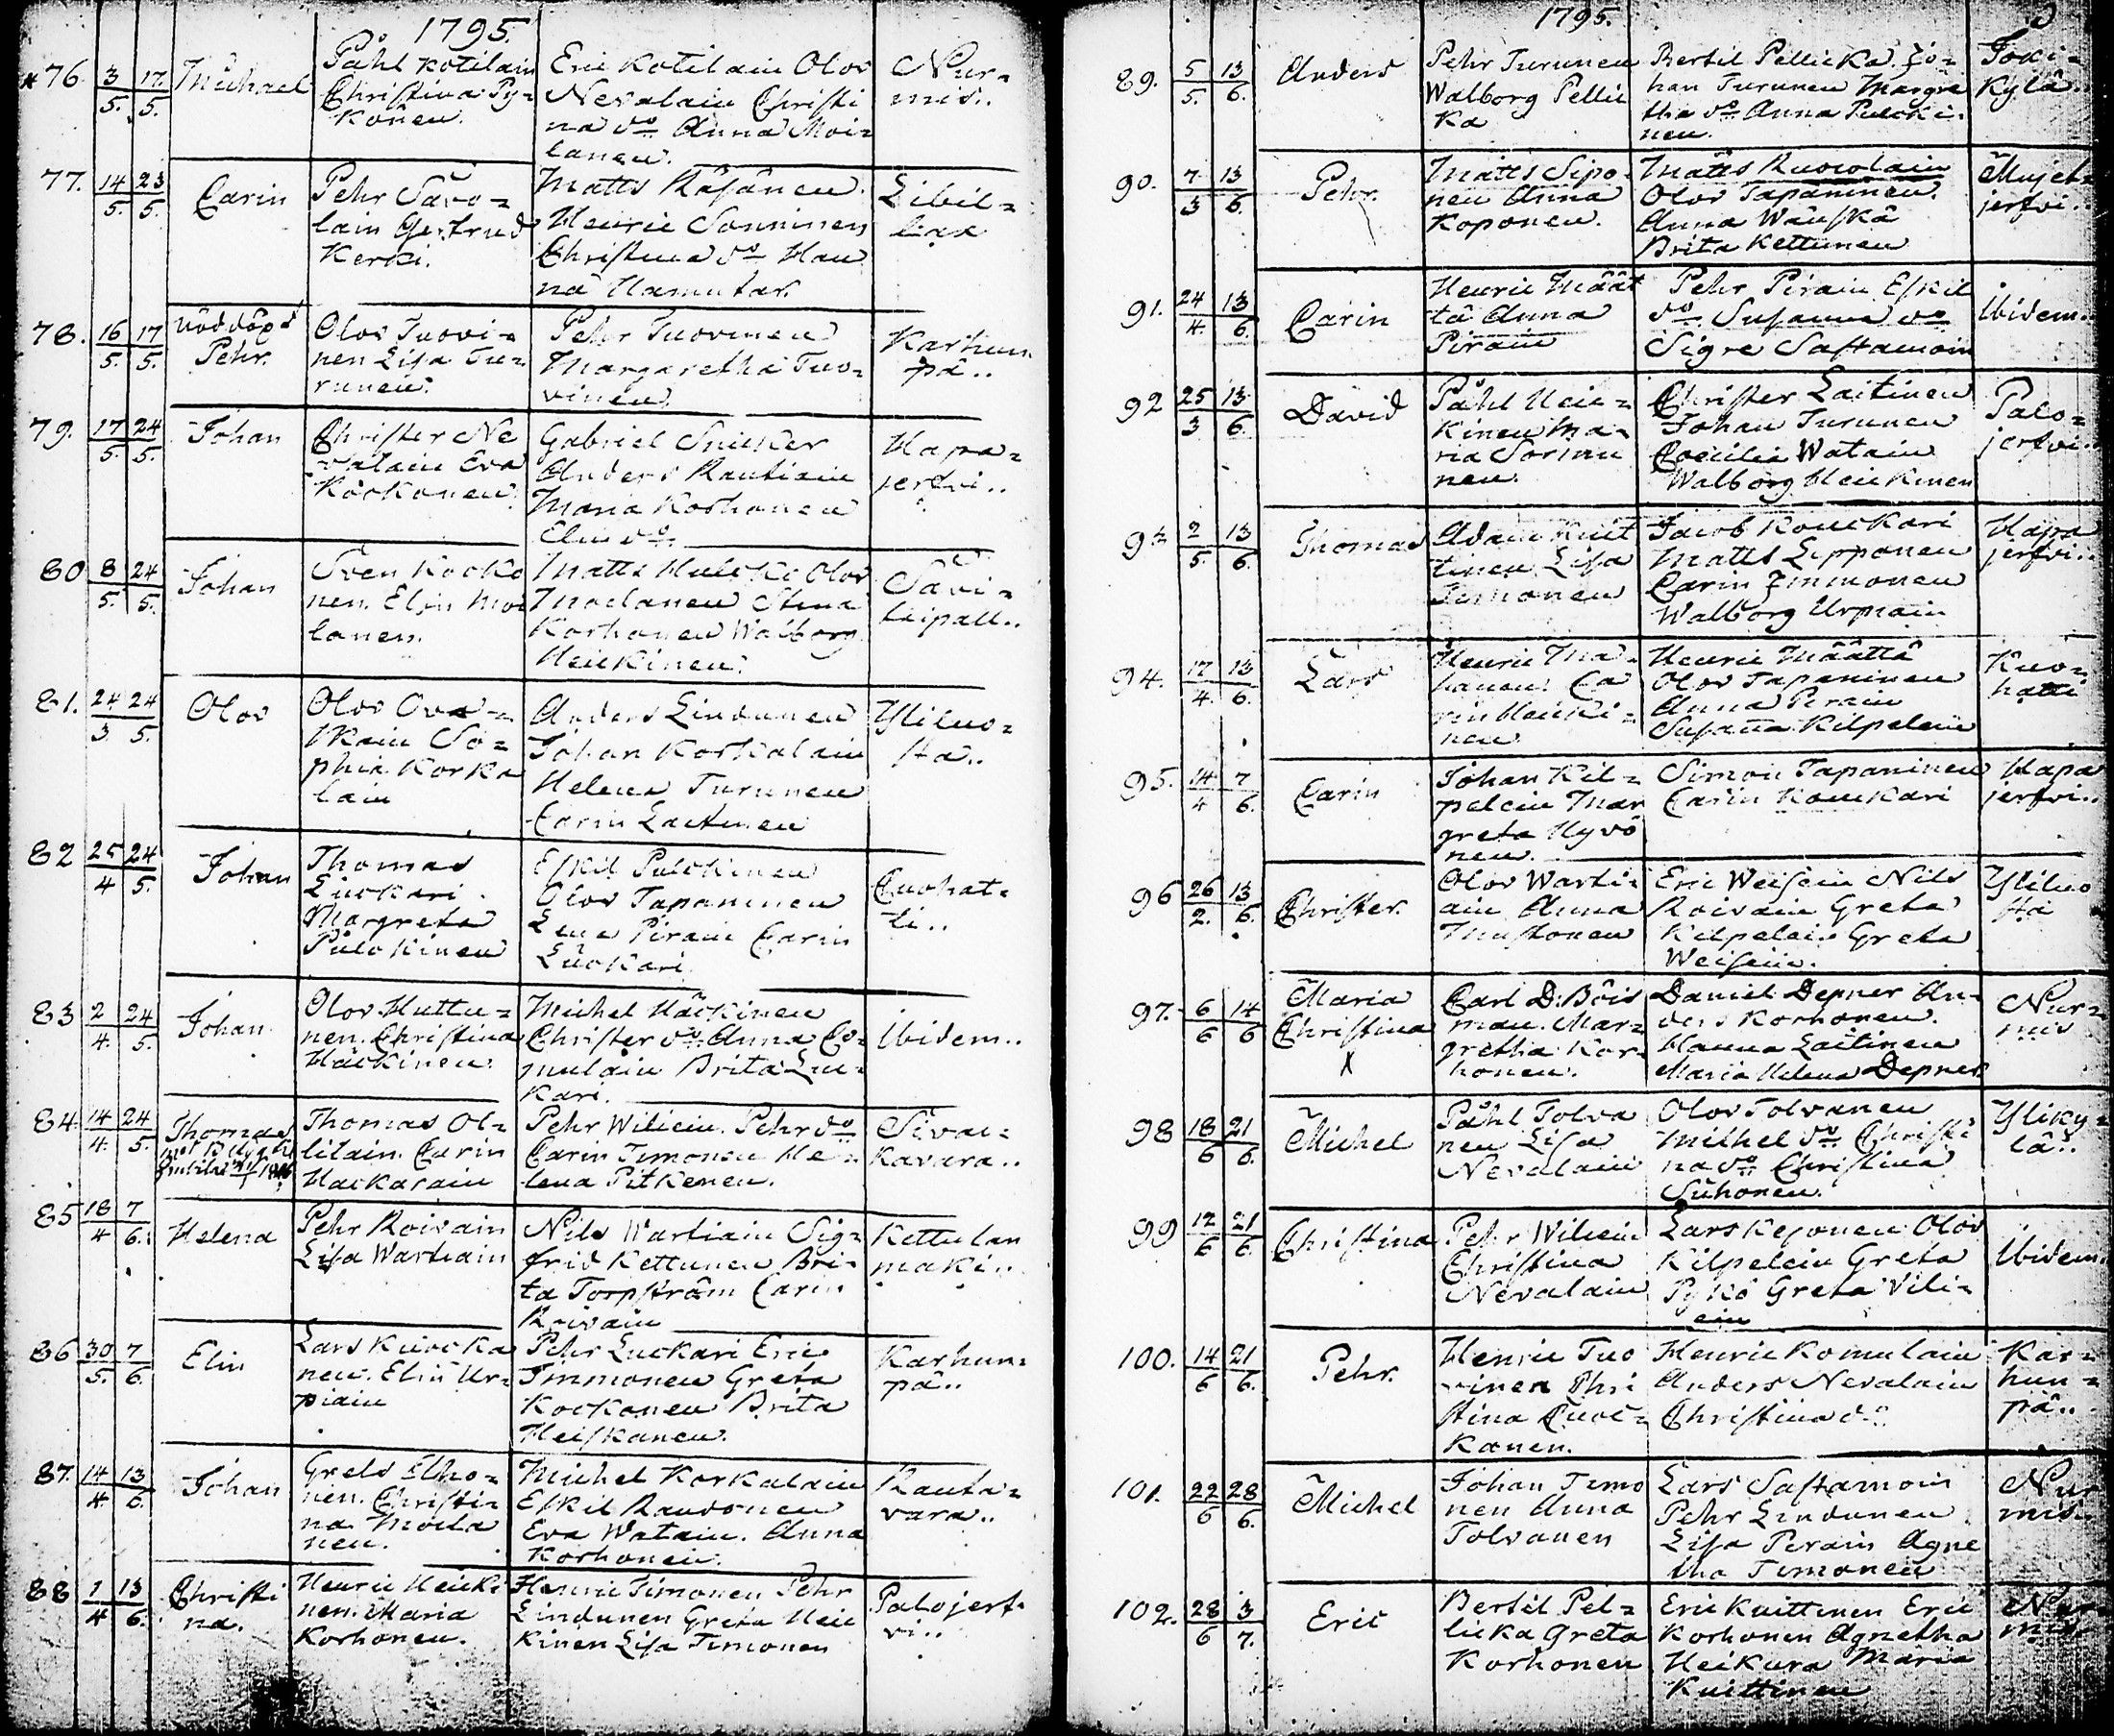 1795.
76. 3/5. 17./5. Michael
Påhl Kotilain
Christina Py=
könen.
Eric Kotilain Olov
Nevalain Christi
na do Anna Moi=
lanen.
Nur=
mis..
77. 14/5. 23/5. Carin
Pehr Savo=
lain Gertrud
Kerki.
Matts Räsänen
Henric Sonninen
Christina do Han
na Hamutar.
Libil=
liax
78. 16/5. 17/5. Nöddöpt
Pehr.
Olov Tuovi=
nen Lisa Tu=
runen.
Pehr Tuovinen
Margaretha Tuo=
vinen.
Karhun
pä..
79. 17/5. 24/5. Johan
Christer Ne
valain Eva
Kockonen.
Gabriel Snicker
Anders Rautiain
Maria Korhonen
Elin do.
Hapa=
jerfvi..
80 8/5. 24/5. Johan
Sven Kocko
nen. Elin Moi
lanen.
Matts Mulcko Olov
Moilanen Stina
Korhonen Walborg
Heickinen.
Savi=
keipall..
81. 24/3 24/5. Olov
Olov Ova=
skain So=
phia Korka
lain
Anders Lindunen
Johan Korkalain
Helena Turunen
Carin Laitinen
Yliluo=
sta..
82 25/4 24/5. Johan
Thomas
Luckari.
Margreta
Pulckinen
Eskil Pulckinen
Olov Tapaninen
Lena Pirain Carin
Luckari.
Cuohat=
ti..
83 2/4. 24/5. Johan
Olov Huttu=
nen. Christina
Häckinen.
Michel Häckinen
Christer do Anna Co=
mulain Brita Luc=
kari.
Ibidem..
84. 14/4. 24/5. Thomas
Thomas Ol=
lilain. Carin
Hackarain
Pehr Wiliein. Pehr do
Carin Timonen He=
lena Pitkenen.
Sivac=
kavara..
85 18/4 7/6. Helena
Pehr Roivain
Lisa Wartiain
Nils Wartiain Sig=
frid Kettunen Bri=
ta Torpström Carin
Roivain
Kettulan
mäki..
86 30/5. 7/6. Elin
Lars Kuocka
nen. Elin Ur=
piain
Pehr Luckari Eric
Immonen Greta
Kockonen Brita
Heiskanen.
Karhun=
pä..
87. 14/4 13/6. Johan
Grels Elho=
nen. Christi=
na Moila
nen.
Michel Korkalain
Eskil Raudonen
Eva Watain. Anna
Korhonen.
Rauta=
vara..
88 1/4 13/6. Christi
na.
Henric Heicki
nen. Maria
Korhonen.
Henric Timonen Pehr
Lindunen Greta Heic
kinen Lisa Timonen
Palojerf=
vi..
1795.
89. 5/5. 13/6. Anders
Pehr Turunen
Walborg Pellic
ka
Bertil Pellicka. Jo=
han Turunen Margre
tha do Anna Pulcki=
nen.
Joki=
kylä..
90. 7/3 13/6. Pehr.
Matts Sipo=
nen Anna
Koponen.
Matts Ruovolain
Olov Tapaninen.
Anna Wänskä
Brita Kettunen
Mujet=
jerfvi..
91. 24/4. 13/6. Carin
Henric Määt
tä Anna
Pirain
Pehr Pirain Eskil
do. Susanna do
Sigre Sastamoin
Ibidem..
92 25/3 13/6. David
Påhl Heic=
kinen Ma=
ria Sormu
nen.
Christer Laitinen
Johan Turunen
Coecilia Watain
Walborg Heickinen
Palo=
jerfvi..
93 2/5. 13/6. Thomas
Adam Kuit
tinen Lisa
Timonen
Jacob Kouckari
Matts Lipponen
Carin Immonen
Walborg Urpiain
Hapa
jerfvi..
94. 17/4. 13/6. Lars
Henric Ma=
hanen. Ca
rin Heicki=
nen
Henric Määttä
Olov Tapaninen
Anna Pirain
Susanna Kilpelein
Kuo=
hatti
95. 14/4 7/6. Carin
Johan Kil=
pelein Mar
greta Hyvö
nen.
Simon Tapaninen
Carin Kouckari
Hapa
jerfvi..
96 26/2. 13/6. Christer.
Olov Warti=
ain Anna
Mustonen
Eric Weisein Nils
Roivain Greta
Kilpelein Greta
Weisein.
Yliluo
sta
97. 6/6 14/6 Maria
Christina
X
Carl D. Bois
man. Mar=
gretha Kor=
honen.
Daniel Depner An=
ders Korhonen.
Hanna Laitinen
Maria Helena Depner
Nur=
mis
98 18/6 21/6. Michel
Påhl Tolva
nen Lisa
Nevalain
Olov Tolvanen
Mithel do Christi
na do Christina
Suhonen.
Yliky=
lä..
99 12/6 21/6. Christina
Pehr Wiliein
Christina
Nevalain
Lars Keponen Olov
Kilpelein Greta
Pykö Greta Vili=
ein
Ibidem.
100. 14/6 21/6. Pehr.
Henric Tuo
vinen Chri
stina Cuoc=
kanen.
Henric Komulain
Anders Nevalain
Christina do
Kar=
hun=
pä..
101. 22/6 28/6. Michel
Johan Timo
nen Anna
Tolvanen
Lars Sastamoin
Pehr Lindunen
Lisa Perain Agne
tha Timonen
Nur
mis..
102. 28/6 3/7. Eric
Bertil Pel=
licka Greta
Korhonen
Eric Kuittinen Eric
Korhonen Agnetha
Heikura Maria
Kuittinen
Nur=
mis..